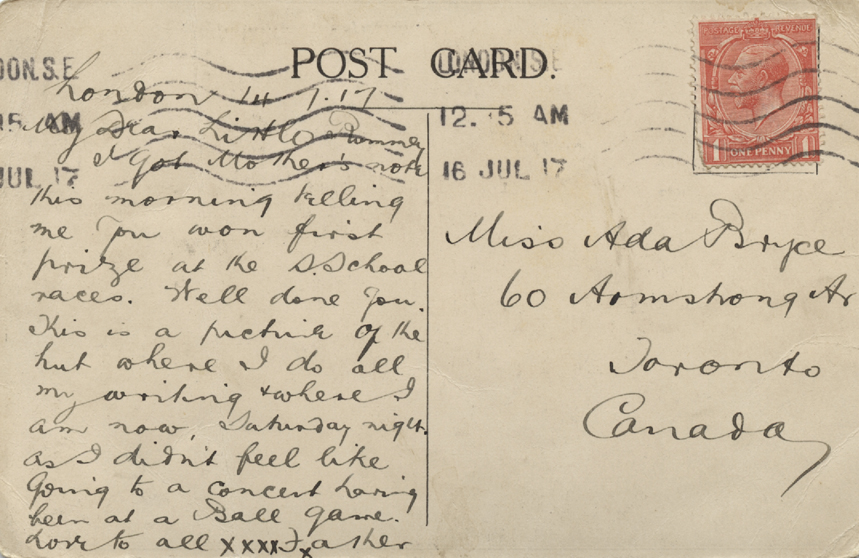 POST CARD.
LONDON.S.E
12.15 AM
16 JUL 17
DON.S.E
15 AM
JUL 17
POSTAGE REVENUE
1 ONE PENNY 1
London 14.7.17
My Dear Little Runner
I got Mother's note
this morning telling
me you won first
prize at the S. School
races. Well done you.
This is a picture of the
hut where I do all
my writing & where I
am now, Saturday night.
as I didn't feel like
going to a concert having
been at a Ball game.
Love to all xxxx Father
x
Miss Ada Bryce
60 Armstrong Av
Toronto
Canada